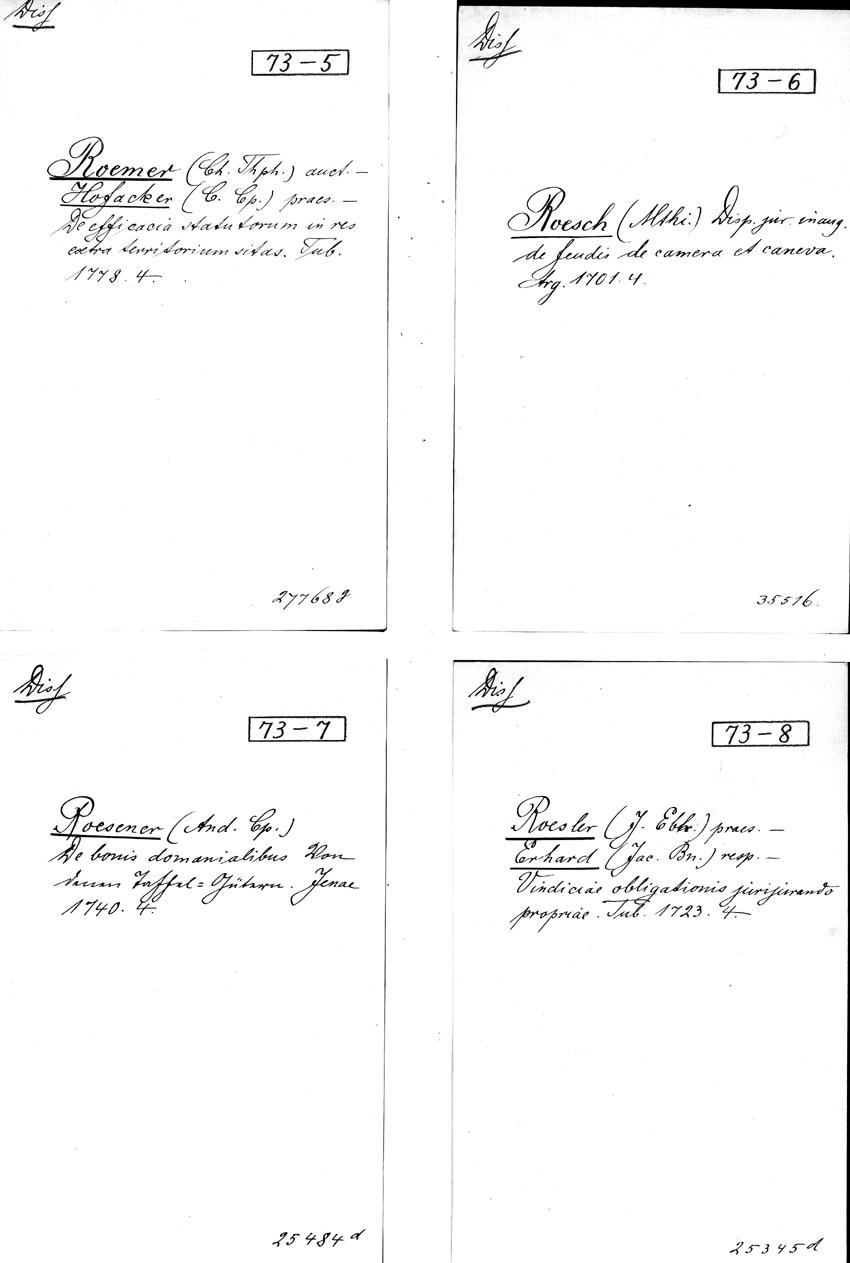 Diss
73-5
Roemer (Ch. Thph.) auct. —
Hofacker (C. Cp.) praes. —
De efficacia statutorum in res
extra territorium sitas. Tub.
1778. 4.
27768g
Diss
73-6
Roesch (Mthi.) Disp. jur. inaug.
de feudis de camera et caneva.
Arg. 1701. 4.
35516.
Diss
73-7
Roesener (And. Cp.)
De bonis domanialibus Von
denen Taffel=Gütern. Jenae
1740. 4.
25484d
Diss
73-8
Roesler (J. Ebhr.) praes. —
Erhard (Jac. Bn.) resp. —
Vindiciae obligationis jurijurando
propriae. Tub. 1723. 4
25345d